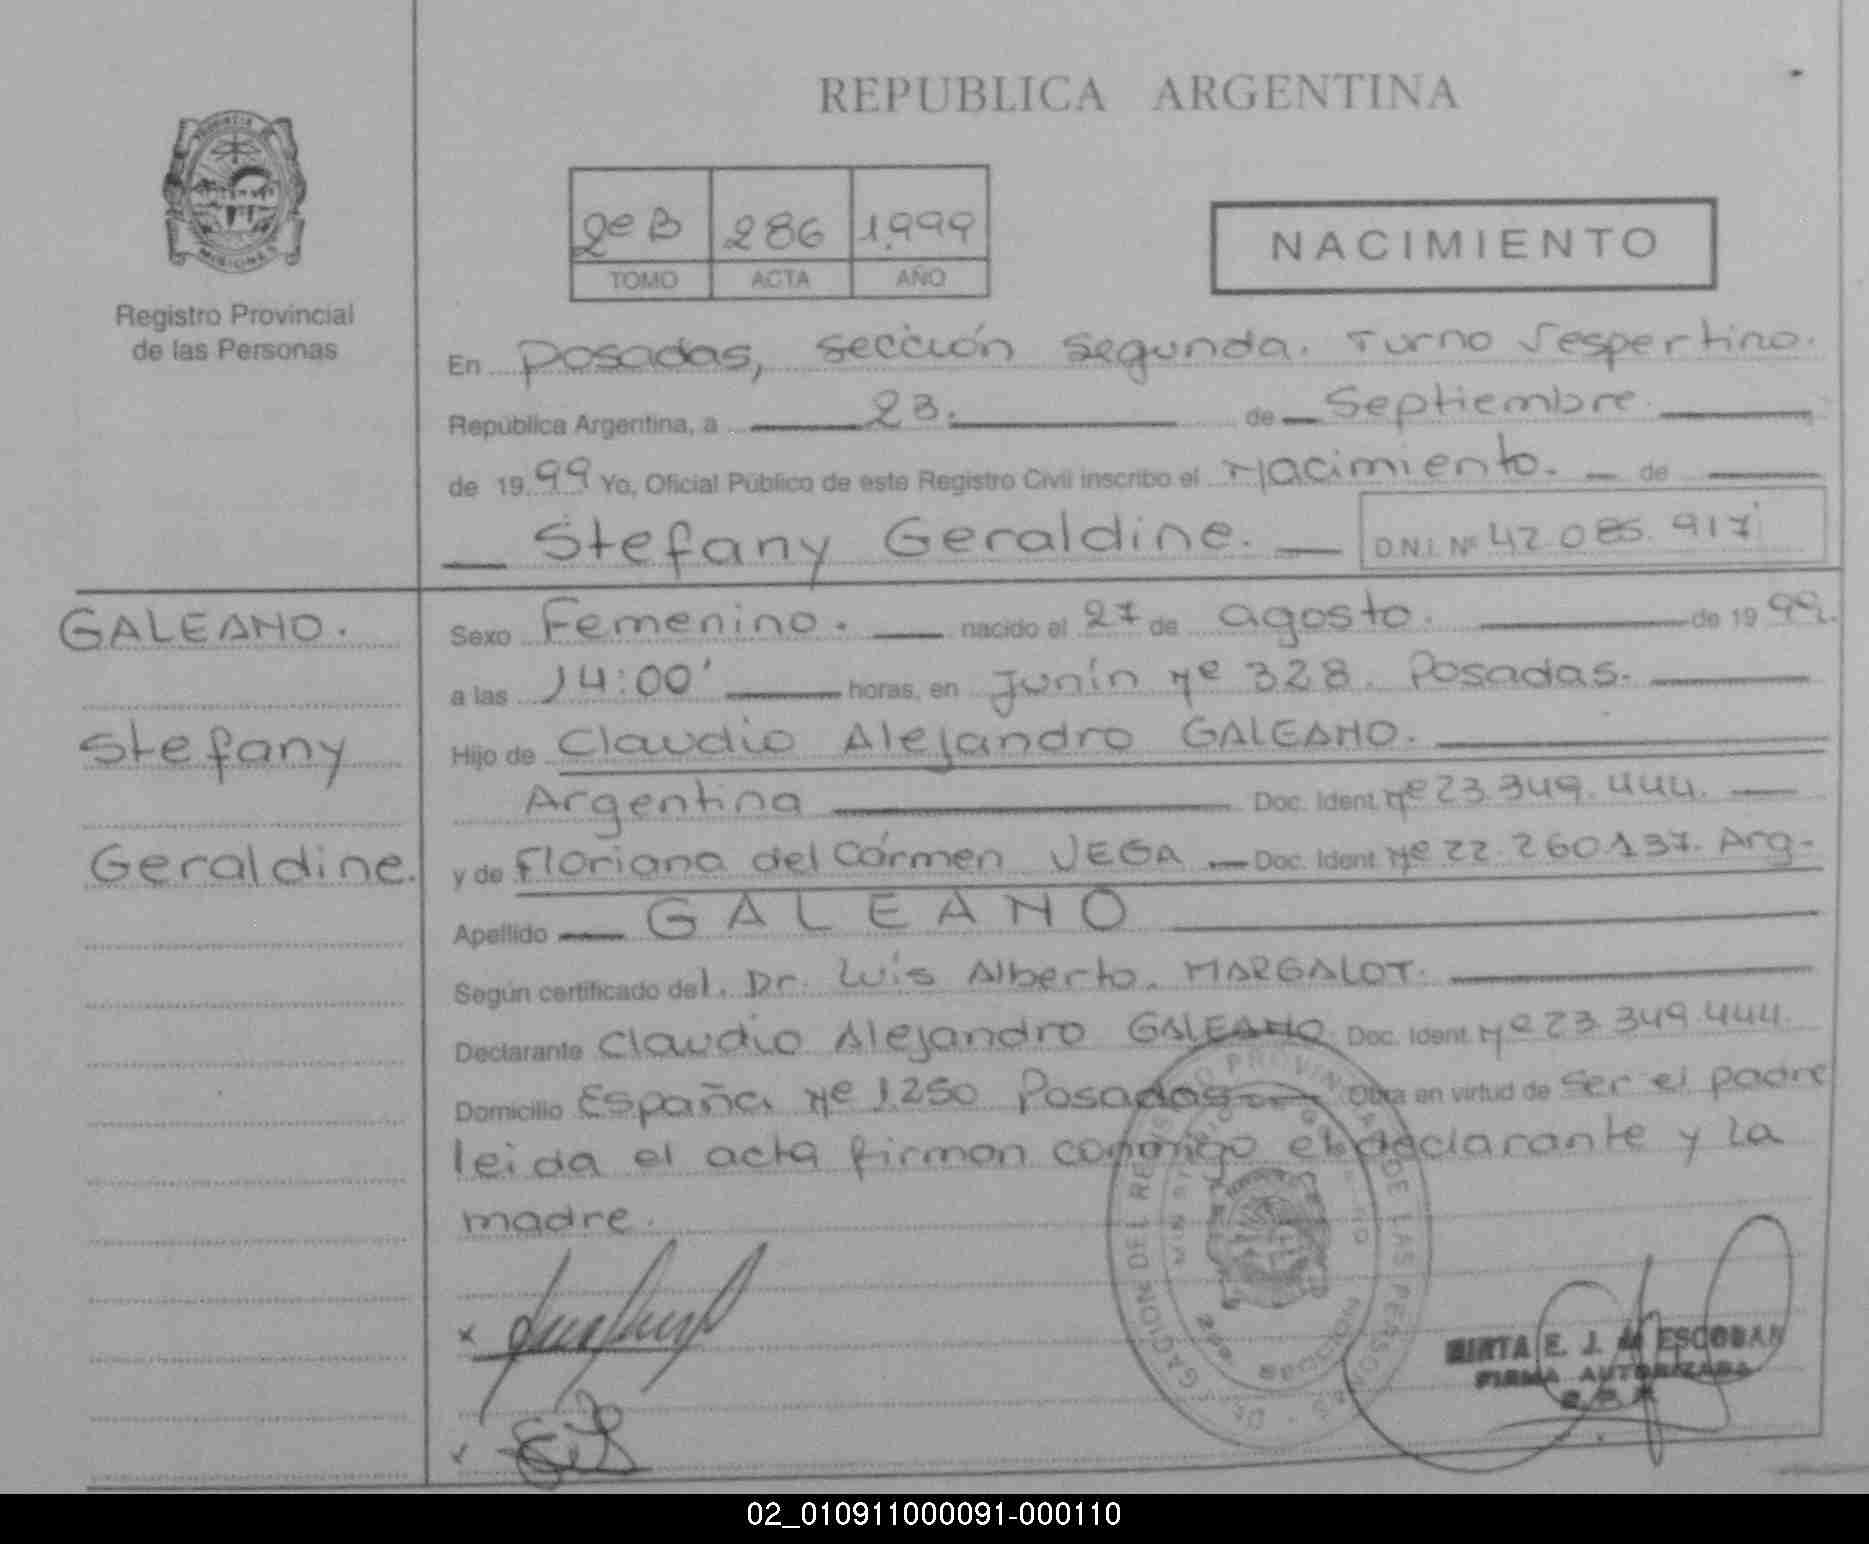 REPUBLICA ARGENTINA
PROVINCIA DE
MISIONES
Registro Provincial
de las Personas
2º B 286 1.999
TOMO ACTA AÑO
NACIMIENTO
En Posadas, sección segunda. Turno Vespertino.
República Argentina, a 23. de Septiembre
de 19 99 Yo, Oficial Público de este Registro Civil inscribo el Nacimiento. de
Stefany Geraldine. D.N.I. Nº 42.085.917
GALEANO.
Stefany
Geraldine.
Sexo Femenino. nacido el 27 de agosto. de 19 99.
a las 14:00' horas, en Junín Nº 328. Posadas.
Hijo de Claudio Alejandro GALEANO.
Argentina Doc. Ident. Nº 23.349.444.
y de Floriana del Cármen VEGA Doc. Ident. Nº 22.260.137. Arg-
Apellido GALEANO
Según certificado del. Dr. Luis Alberto. MARGALOT.
Declarante Claudio Alejandro GALEANO Doc. Ident. Nº 23.349.444.
Domicilio España Nº 1.250 Posadas Obra en virtud de ser el padre
leida el acta firman conmigo el declarante y la
madre.
DELEGACION DEL REGISTRO PROVINCIAL DE LAS PERSONAS
MIRTA E. J. de ESCOBAR
FIRMA AUTORIZADA
02_010911000091-000110